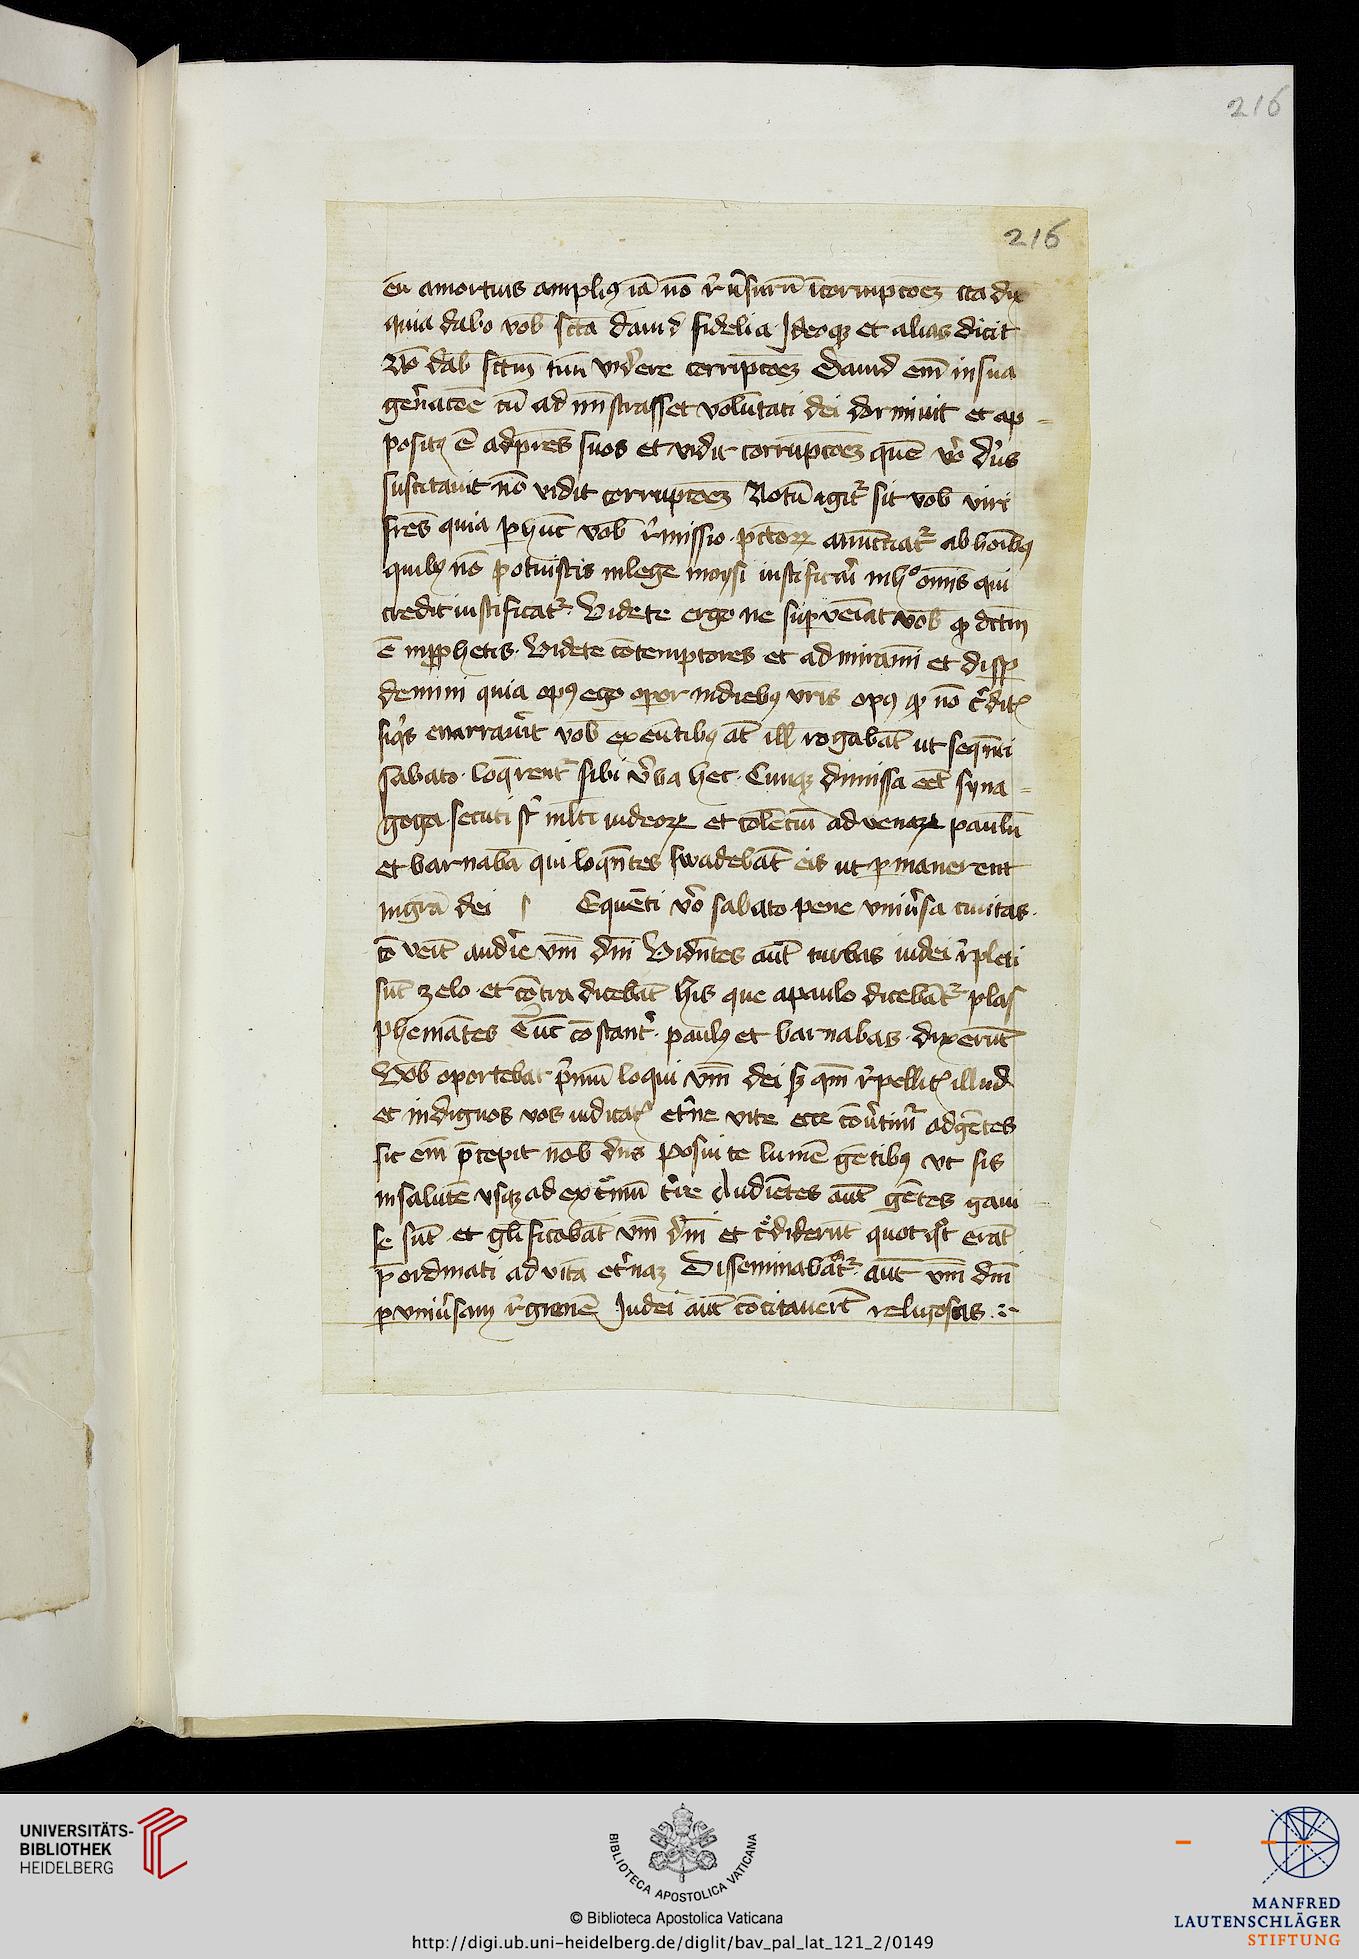 216
216
eū amortuis ampliꝰ iā nō r̄ūsurū īcorrupcōeʒ ita dix
quia dabo vob̄ sctā dauid fidelia Jdeoqꝫ et alias dicit
Nō dab̄ sctm̄ tuū videre corrupcōeʒ Dauid em̄ in sua
gen̄acōe cū ad mīstrasset volūtati dei dormiuit et ap
positꝰ ē ad pr̄es suos et vidit corrupcōeʒ quē vo̅ dūs
suscitauit nō vidit corrupcōeʒ Notū igit᷑ sit vob̄ viri
fr̄es quia ꝑ hūc vob̄ r̄missio pctōꝝ anūcciat᷑ ab hoībꝰ
quibꝰ nō potuistis in lege moysi iustificari in hͦ omīs qui
credit iustificat᷑ Videte ergo ne suꝑ veīat vob̄ qͩ dictm̄
ē in ꝓphetis Videte cōtemptores et admiramī et dispꝑ
demini quia opꝰ ego opor in diebꝰ vr̄is opꝰ qͩ nō c̄ditꝭ
siqͥs enarrauīt vob̄ exeūtibꝰ āt ill̄ rogabāt ut seqn̄ti
sabato loqr̄ent᷑ sibi v̄ba hec Cumqꝫ dimissa eēt syna
goga secuti st̄ ml̄ti iudeoꝝ et colēciū aduenaꝝ paulū
et barnabā qui loqn̄tes swadebāt eis ut ꝑmanerent
in gr̄a dei s Equēti vo̅ sabato pene vniūsa ciuitas
cō veīt audīre vm̄ dm̄ Vidn̄tes aūt turbas iudei r̄pleti
sūt zelo et cōtra dicebāt his que apaulo dicebāt᷑ plas
phemātes Tūc cōstant᷑ paulꝰ et barnabas dixerūt
Vob̄ oportebat pͥmū loqui vm̄ dei sꝫ qm̄ r̄pellitꝭ illud
et indignos vos iudicatꝭ et̄ne vite ecce cōūtim᷑ ad gētes
sic em̄ p̄cepit nob̄ dn̄s Posui te lumē gētibꝰ ut sis
in salutē vsqꝫ ad extͥmū tr̄e Audiētes aūt gētes gaui
se sūt et glīficabāt vm̄ dm̄ et c̄diderūt quotqͦt erāt
p̄ordinati ad vitā et̄naʒ Disseminabat᷑ aūt vm̄ dm̄
ꝑ vniūsam r̄gionē Judei aūt cōcitauert̄ religiosas
UNIVERSITÄTS-
BIBLIOTHEK
HEIDELBERG
BIBLIOTECA APOSTOLICA VATICANA
© Biblioteca Apostolica Vaticana
http://digi.ub.uni-heidelberg.de/diglit/bav_pal_lat_121_2/0149
MANFRED
LAUTENSCHLÄGER
STIFTUNG